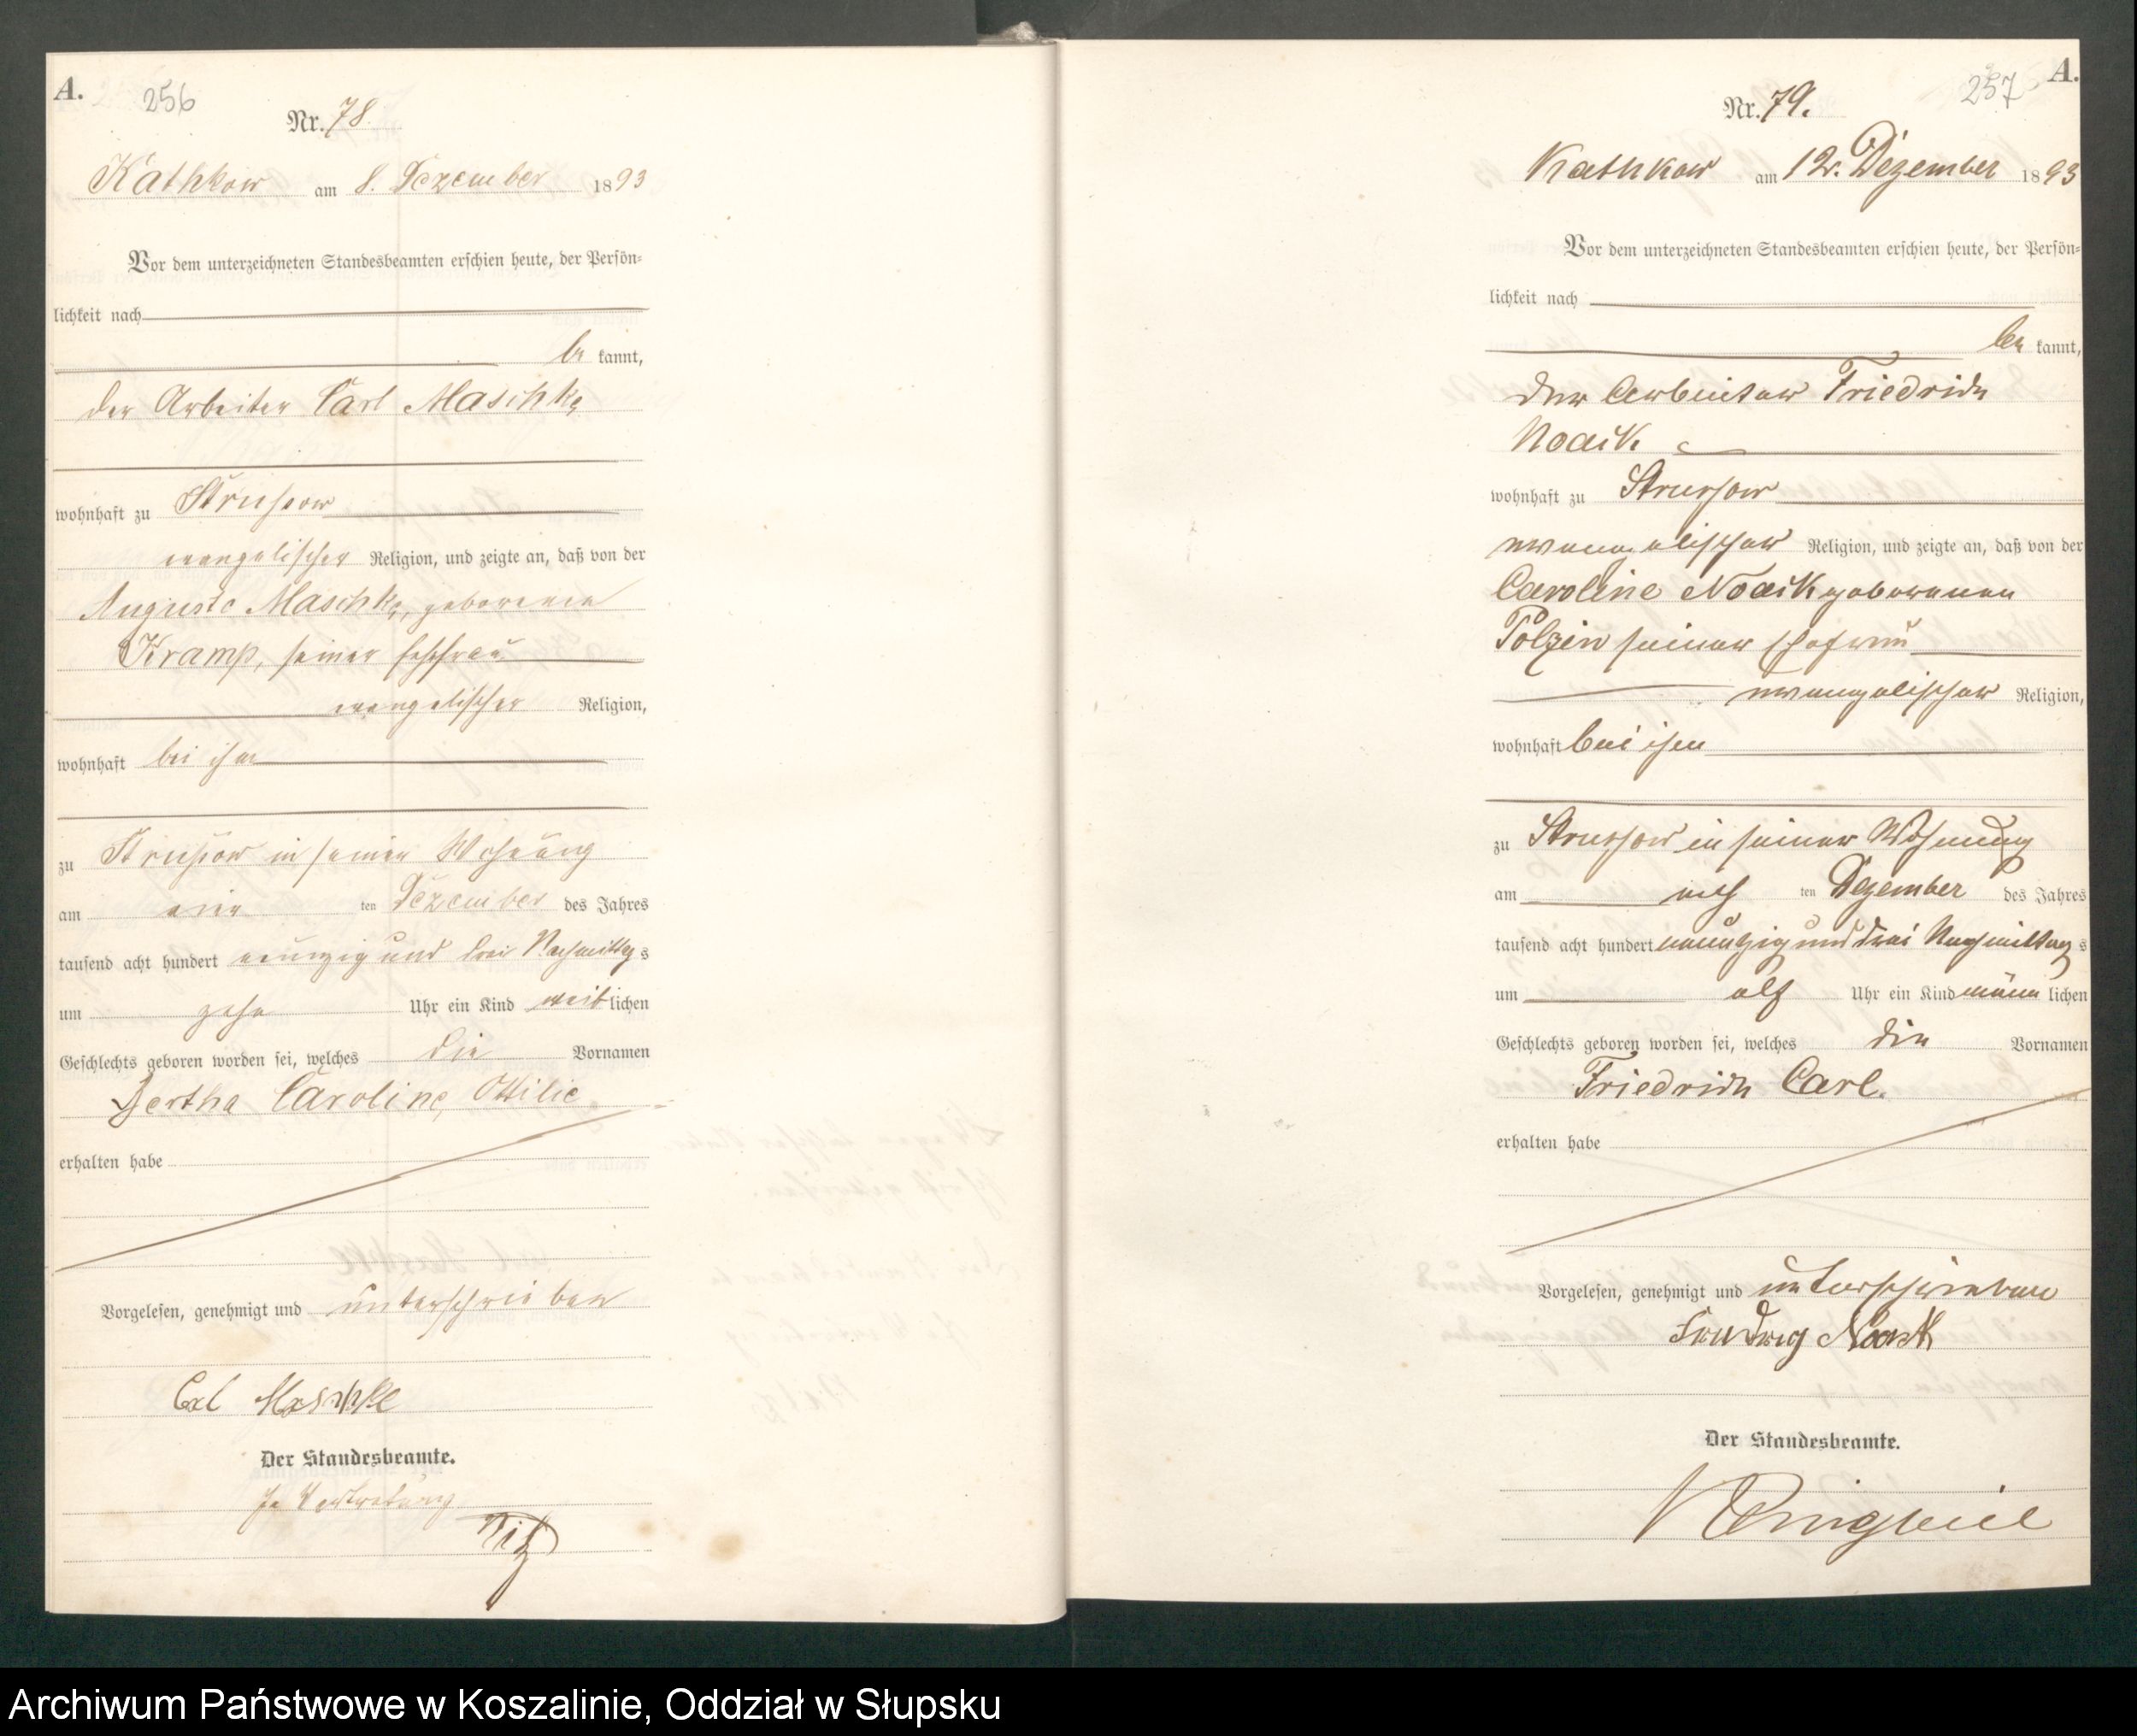 A.
256
Nr. 78.
Kathkow am 8. Dezember 1893
Vor dem unterzeichneten Standesbeamten erschien heute, der Persön-
lichkeit nach
be kannt,
der Arbeiter Carl Maschke
wohnhaft zu Strussow
evangelischer Religion, und zeigte an, daß von der
Auguste Maschke, geborenen
Kramp, seiner Ehefrau
evangelischer Religion,
wohnhaft bei ihm
zu Strussow in seiner Wohnung
am ten Dezember des Jahres
tausend acht hundert neunzig und drei Nachmittags
um zehn Uhr ein Kind weiblichen
Geschlechts geboren worden sei, welches die Vornamen
Bertha Caroline, Ottilie
erhalten habe
Vorgelesen, genehmigt und unterschrieben
Carl Maschke
Der Standesbeamte.
In Vertretung
A.
257
Nr. 79.
Kathkow am 12. Dezember 1893
Vor dem unterzeichneten Standesbeamten erschien heute, der Persön-
lichkeit nach
be kannt,
der Arbeiter Friedrich
Noack
wohnhaft zu Strussow
evangelischer Religion, und zeigte an, daß von der
Caroline Noack geborenen
Polzin seiner Ehefrau
evangelischer Religion,
wohnhaft bei ihm
zu Strussow in seiner Wohnung
am ten Dezember des Jahres
tausend acht hundert neunzig und drei Nachmittags
um Uhr ein Kind männ lichen
Geschlechts geboren worden sei, welches die Vornamen
Friedrich Carl.
erhalten habe
Vorgelesen, genehmigt und unterschrieben
Noack
Der Standesbeamte.
Archiwum Państwowe w Koszalinie, Oddział w Słupsku